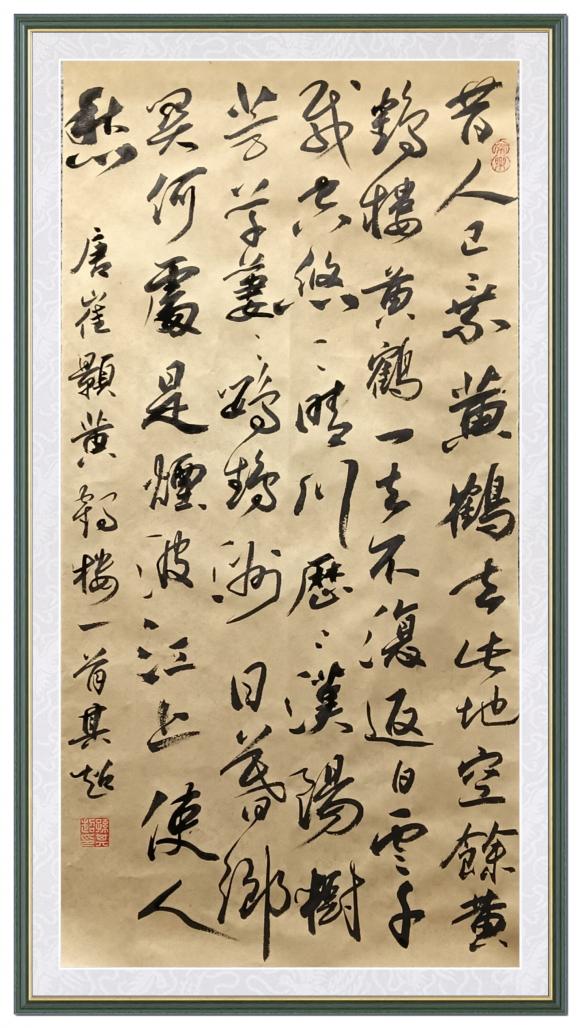 昔人已乘黄鶴去此地空餘黄
鶴樓黄鶴一去不復返白雲千
載空悠〻晴川歷〻漢陽樹
芳草萋〻鸚鵡洲日暮鄉
關何處是煙波江上使人
愁 唐崔顥黄鶴樓一首其超